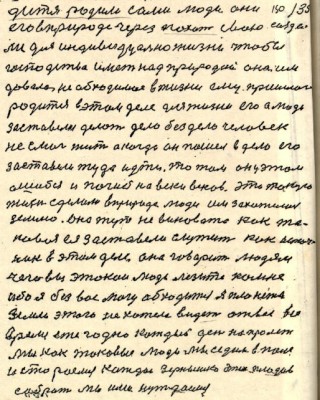 дитя родили сами люди они 130/35
его в природе через похот свою созда
ли для индивидуално жизни чтобы
господства имет над природой она им
довала необходимое в жизни ему пришлос
родится в этом деле для жизни его а люди
заставили делат дело без дело человек
не смог жит а когда он пошел в дело его
заставили туда идти, то там он у этом
ошибся и погиб на веки веков. Это такую
жизн сделали в природе люди им захотили
землю. Она тут не виновата как та
ковая ея заставели служит как источ
ник в этом деле она говорит людям
чего вы это кои люди лезите ко мне
ибо я без вас могу обходится я планета
Земля этого не хотела видет ответ все
время еже годно каждый ден на пролет
мы как таковые люди мы седим в поле
и сторожим каждае зернышко этих плодов
собрат мы ими нуждаимс